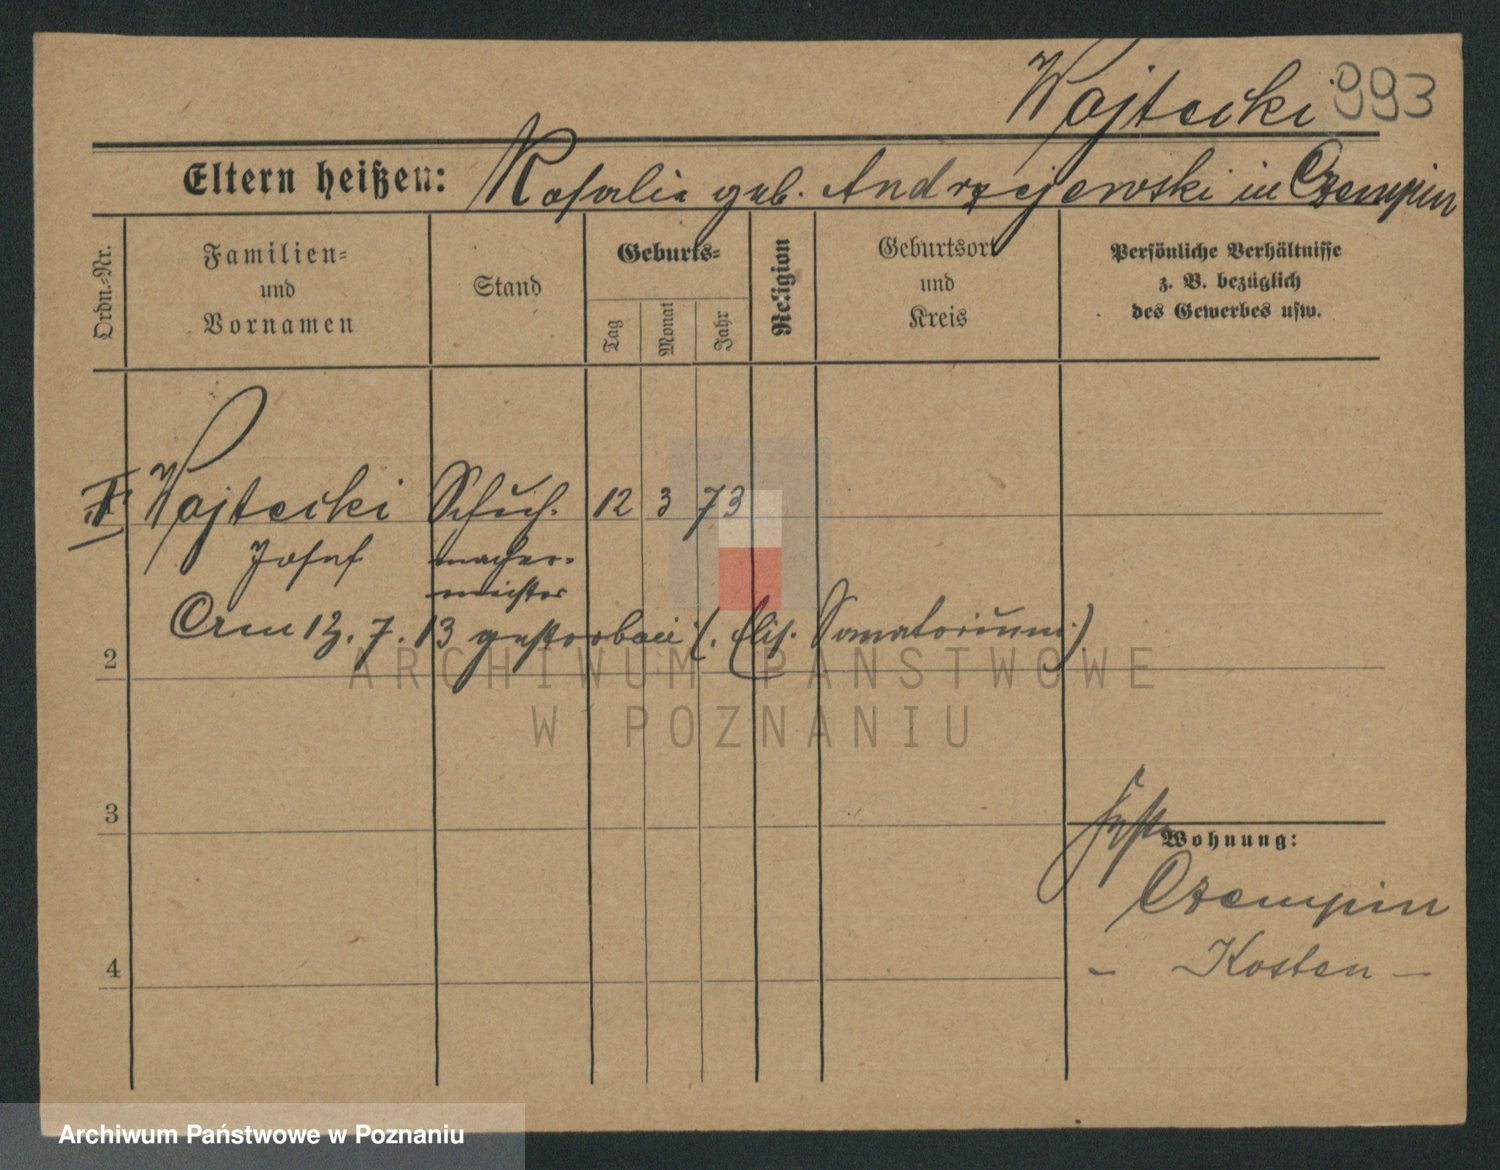 Wojtecki 993
Eltern heißen: Rosalie geb. Andrzejewski in Czempin
Ordn.-Nr.
Familien-
und
Vornamen
Stand
Geburts-
Tag
Monat
Jahr
Religion
Geburtsort
und
Kreis
Persönliche Verhältnisse
z. B. bezüglich
des Gewerbes usw.
Wojtecki Schuh- 12 3 73
Josef macher-
meister
Am 12. 7. 13 gestorben (. Elis. Sanatorium.)
2
3
4
Wohnung:
Czempin
- Kosten -
ARCHIWUM PAŃSTWOWE
W POZNANIU
Archiwum Państwowe w Poznaniu